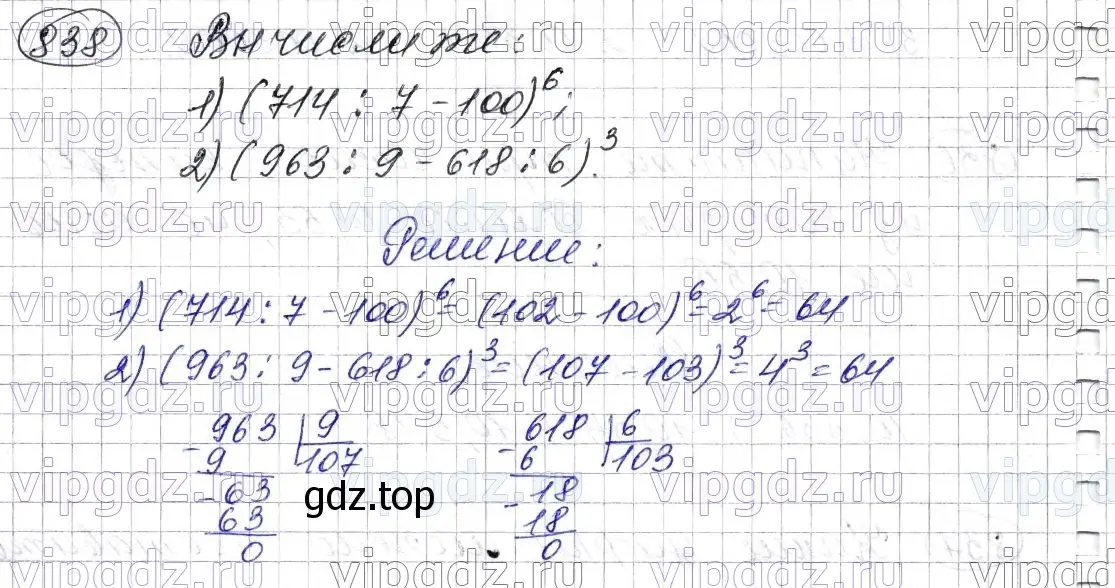 838 Вычислите:
1) (714 : 7 - 100)⁶;
2) (963 : 9 - 618 : 6)³.
Решение:
1) (714 : 7 - 100)⁶ = (102 - 100)⁶ = 2⁶ = 64
2) (963 : 9 - 618 : 6)³ = (107 - 103)³ = 4³ = 64
963 | 9 618 | 6
- 9 107 - 6 103
- 63 - 18
63 18
0 0
gdz.top
vipgdz.ru